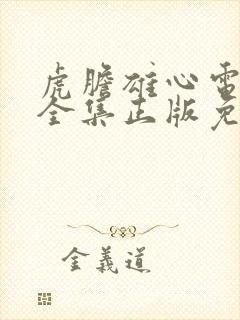 虎膽雄心電
全集正版免
金義道